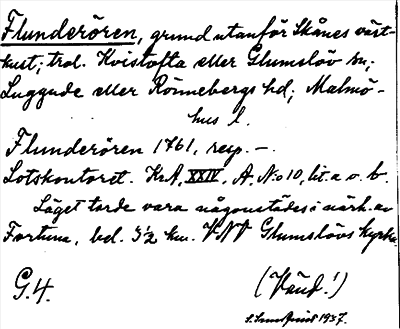 Flunderören, grund utanför Skånes väst-
kust; trol. Kvistofta eller Glumslöv sn;
Luggude eller Rönnebergs hd; Malmö-
hus l.
Flunderören 1761, resp. –.
Lotskontoret. KrA, XXIV, A, No 10, lit. a o. b.
Läget torde vara någonstädes i närh. av
Fortuna, bel. 3½ km. VNV Glumslövs kyrka.
G.4. (Vänd!)
1937.